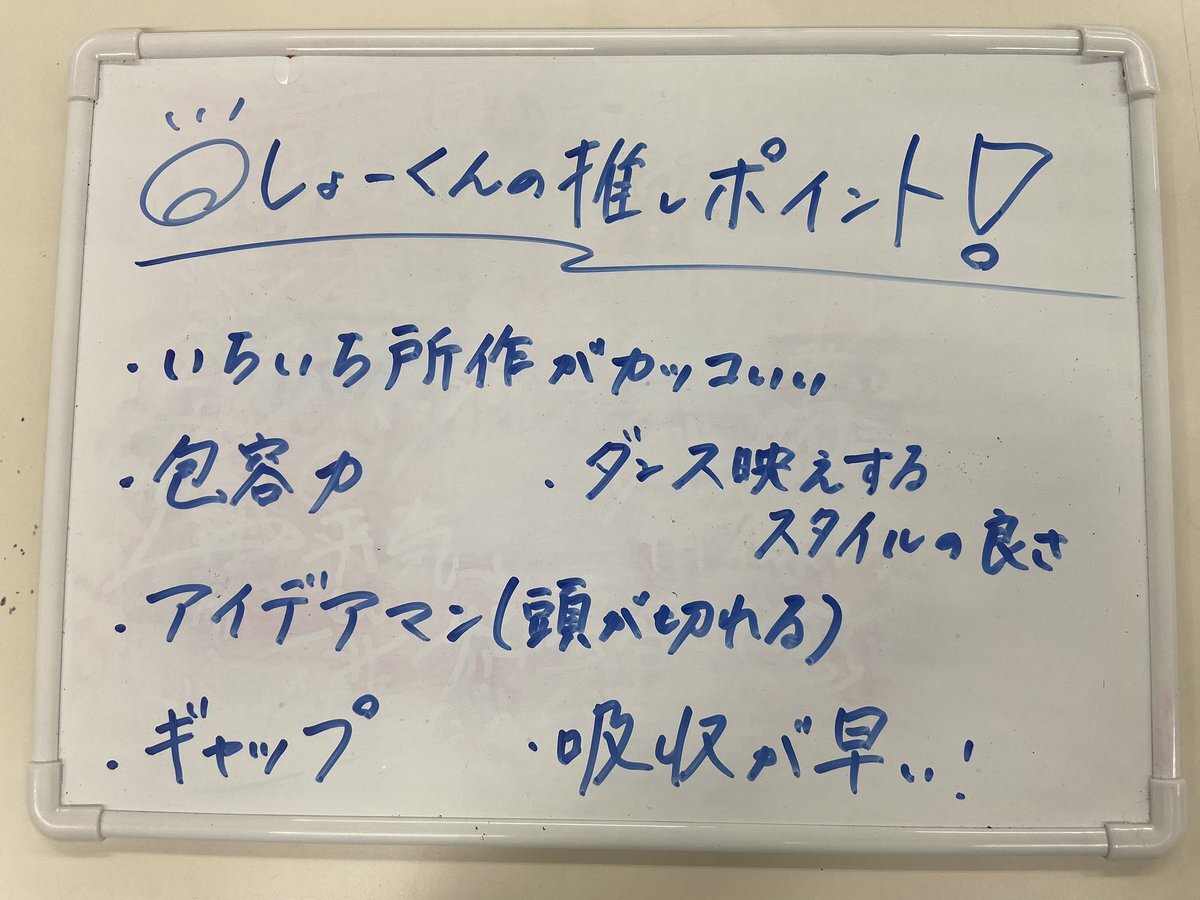 しょーくんの推しポイント!
・いちいち所作がカッコいい
・包容力
・ダンス映えする
スタイルの良さ
・アイデアマン(頭が切れる)
・ギャップ
・吸収が早い!